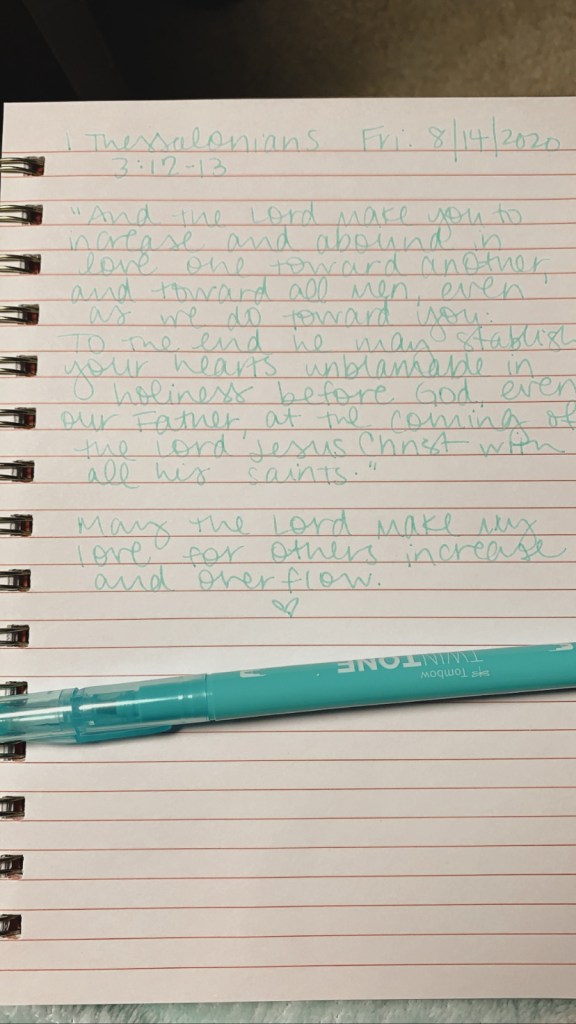 1 Thessalonians Fri. 8/14/2020
3:12-13
"And the Lord make you to
increase and abound in
love one toward another,
and toward all men, even
as we do toward you:
To the end he may stablish
your hearts unblamable in
holiness before God, even
our Father, at the coming of
the Lord Jesus Christ with
all his saints."
May the Lord make my
love for others increase
and overflow.
Tombow
TWINTONE